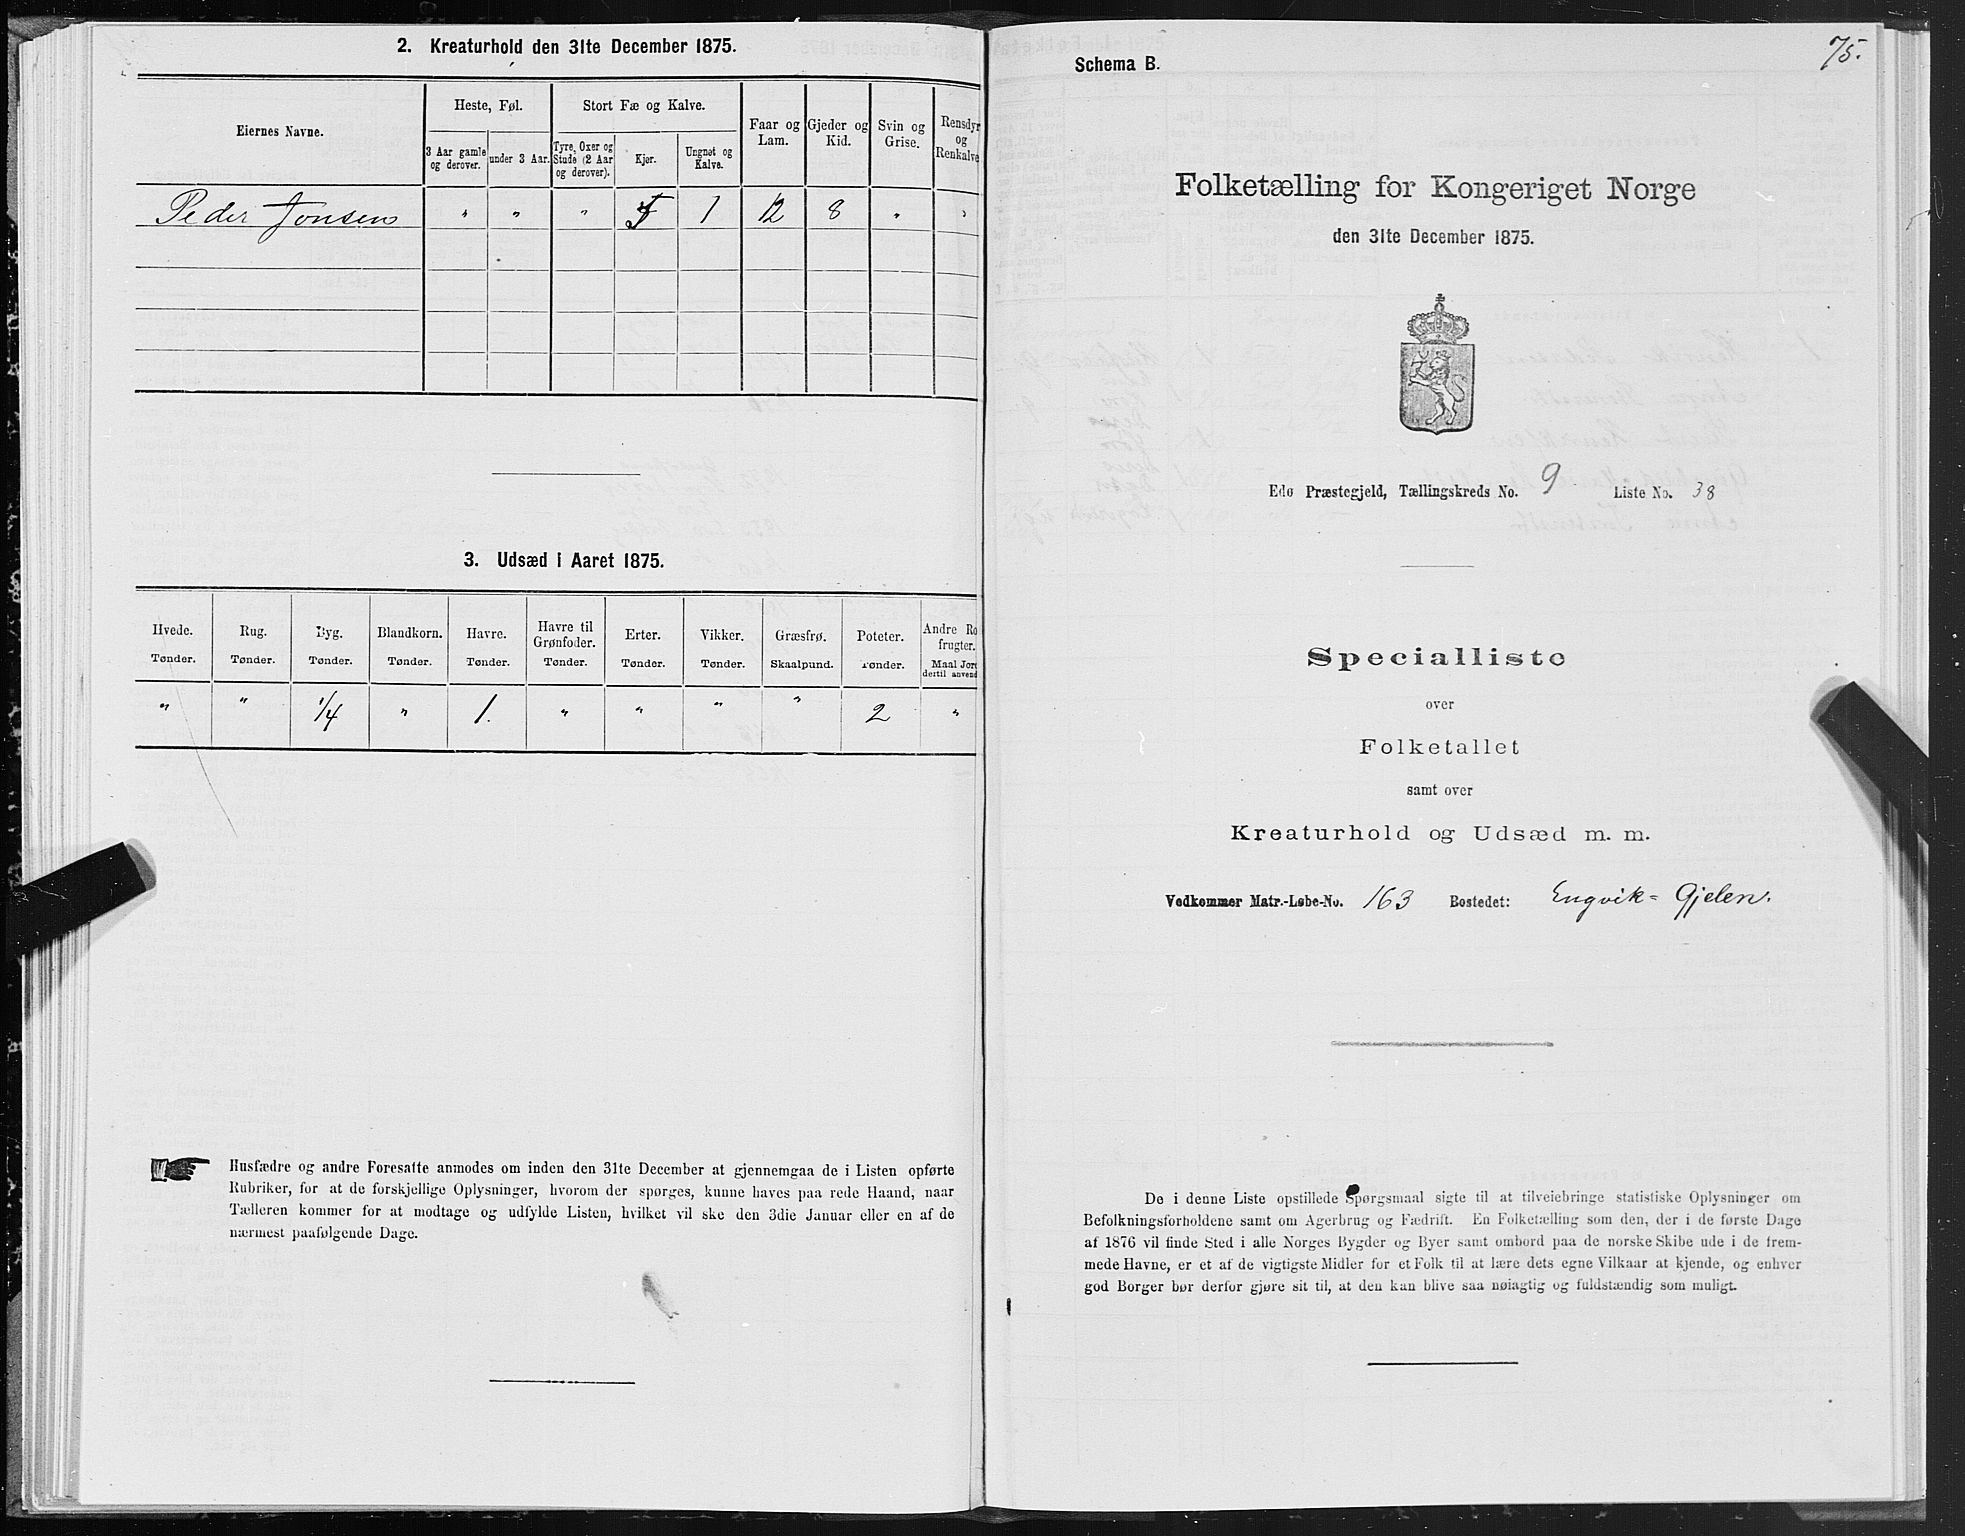 2. Kreaturhold den 31te December 1875.
Eiernes Navne.
Heste, Føl.
Stort Fæ og Kalve.
Faar og Lam.
Gjeder og Kid.
Svin og Grise.
Rensdyr og Renkalve
3 Aar gamle og derover.
under 3 Aar.
Tyre, Oxer og Stude (2 Aar og derover).
Kjør.
Ungnøt og Kalve.
Peder Jonsen " " " 5 1 12 8 " "
3. Udsæd i Aaret 1875.
Hvede. Rug. Byg. Blandkorn. Havre. Havre til Grønfoder. Erter. Vikker. Græsfrø. Poteter. Andre Ro frugter.
Tønder. Tønder. Tønder. Tønder. Tønder. Tønder. Tønder. Tønder. Skaalpund. Tønder. Maal Jord dertil anvend
" " 1/4 " 1. " " " " 2 "
Husfædre og andre Foresatte anmodes om inden den 31te December at gjennemgaa de i Listen opførte
Rubriker, for at de forskjellige Oplysninger, hvorom der spørges, kunne haves paa rede Haand, naar
Tælleren kommer for at modtage og udfylde Listen, hvilket vil ske den 3die Januar eller en af de
nærmest paafølgende Dage.
75.
Schema B.
Folketælling for Kongeriget Norge
den 31te December 1875.
Edø Præstegjeld, Tællingskreds No. 9 Liste No. 38
Specialliste
over
Folketallet
samt over
Kreaturhold og Udsæd m. m.
Vedkommer Matr.-Løbe-No. 163 Bostedet: Engvik- Gjelen.
De i denne Liste opstillede Spørgsmaal sigte til at tilveiebringe statistiske Oplysninger om
Befolkningsforholdene samt om Agerbrug og Fædrift. En Folketælling som den, der i de første Dage
af 1876 vil finde Sted i alle Norges Bygder og Byer samt ombord paa de norske Skibe ude i de frem-
mede Havne, er et af de vigtigste Midler for et Folk til at lære dets egne Vilkaar at kjende, og enhver
god Borger bør derfor gjøre sit til, at den kan blive saa nøiagtig og fuldstændig som muligt.